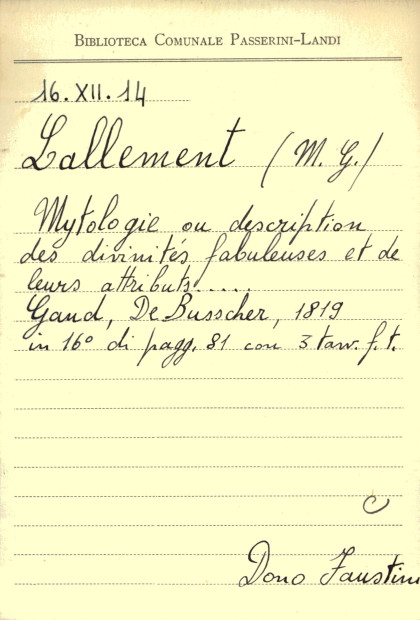 BIBLIOTECA COMUNALE PASSERINI-LANDI
16.XII.14
Lallement (M. G.)
Mytologie ou description
des divinités fabuleuses et de
leurs attributs.....
Gand, De Busscher, 1819
in 16° di pagg. 81 con 3 tavv. f. t.
Dono Faustini